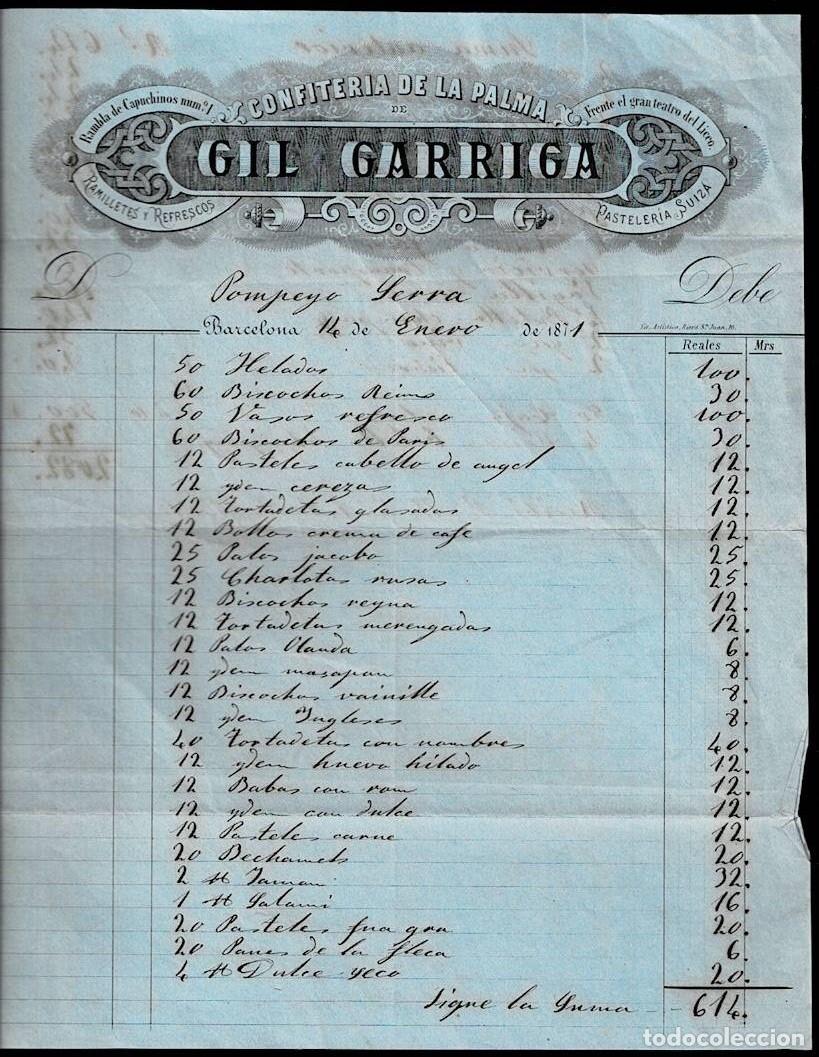 CONFITERIA DE LA PALMA
DE
GIL GARRIGA
Rambla de Capuchinos num.º 1
Frente el gran teatro del Liceo.
RAMILLETES Y REFRESCOS
PASTELERIA SUIZA
D Pompeyo Serra Debe
Barcelona 14 de Enero de 1871
Lit. Artística, Riera Sn. Juan, 16.
Reales Mrs
50 Helados 100.
60 Biscochos Reims 30.
50 Vasos refresco 100.
60 Biscochos de Paris 30.
12 Pasteles cabello de angel 12.
12 yden cerezas 12.
12 Tortadetas glasadas 12.
12 Bollos crema de cafe 12.
25 Palos jacobo 25.
25 Charlotas rusas 25.
12 Biscochos reyna 12.
12 Tortadetas merengadas 12.
12 Palos Olanda 6.
12 yden masapan 8.
12 Biscochos vainille 8.
12 yden Ingleses 8.
40 Tortadetas con nombres 40.
12 yden huevo hilado 12.
12 Babas con rom 12.
12 yden con dulce 12.
12 Pasteles carne 12.
20 Bechamels 20.
2 tt Jamon 32.
1 tt Salami 16.
20 Pasteles fua gra 20.
20 Panes de la fleca 6.
4 tt Dulce seco 20.
Sigue la Suma 614.
2082.
todocoleccion